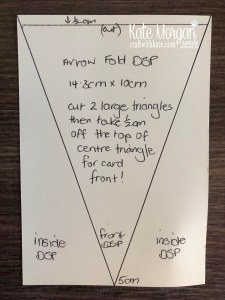 ↓½cm
(cut)
Kate Morgan
Arrow Fold DSP
14.3cm x 10cm
cut 2 large triangles
then take ½cm
off the top of
centre triangle
for card
front!
inside DSP
front DSP
inside DSP
5cm